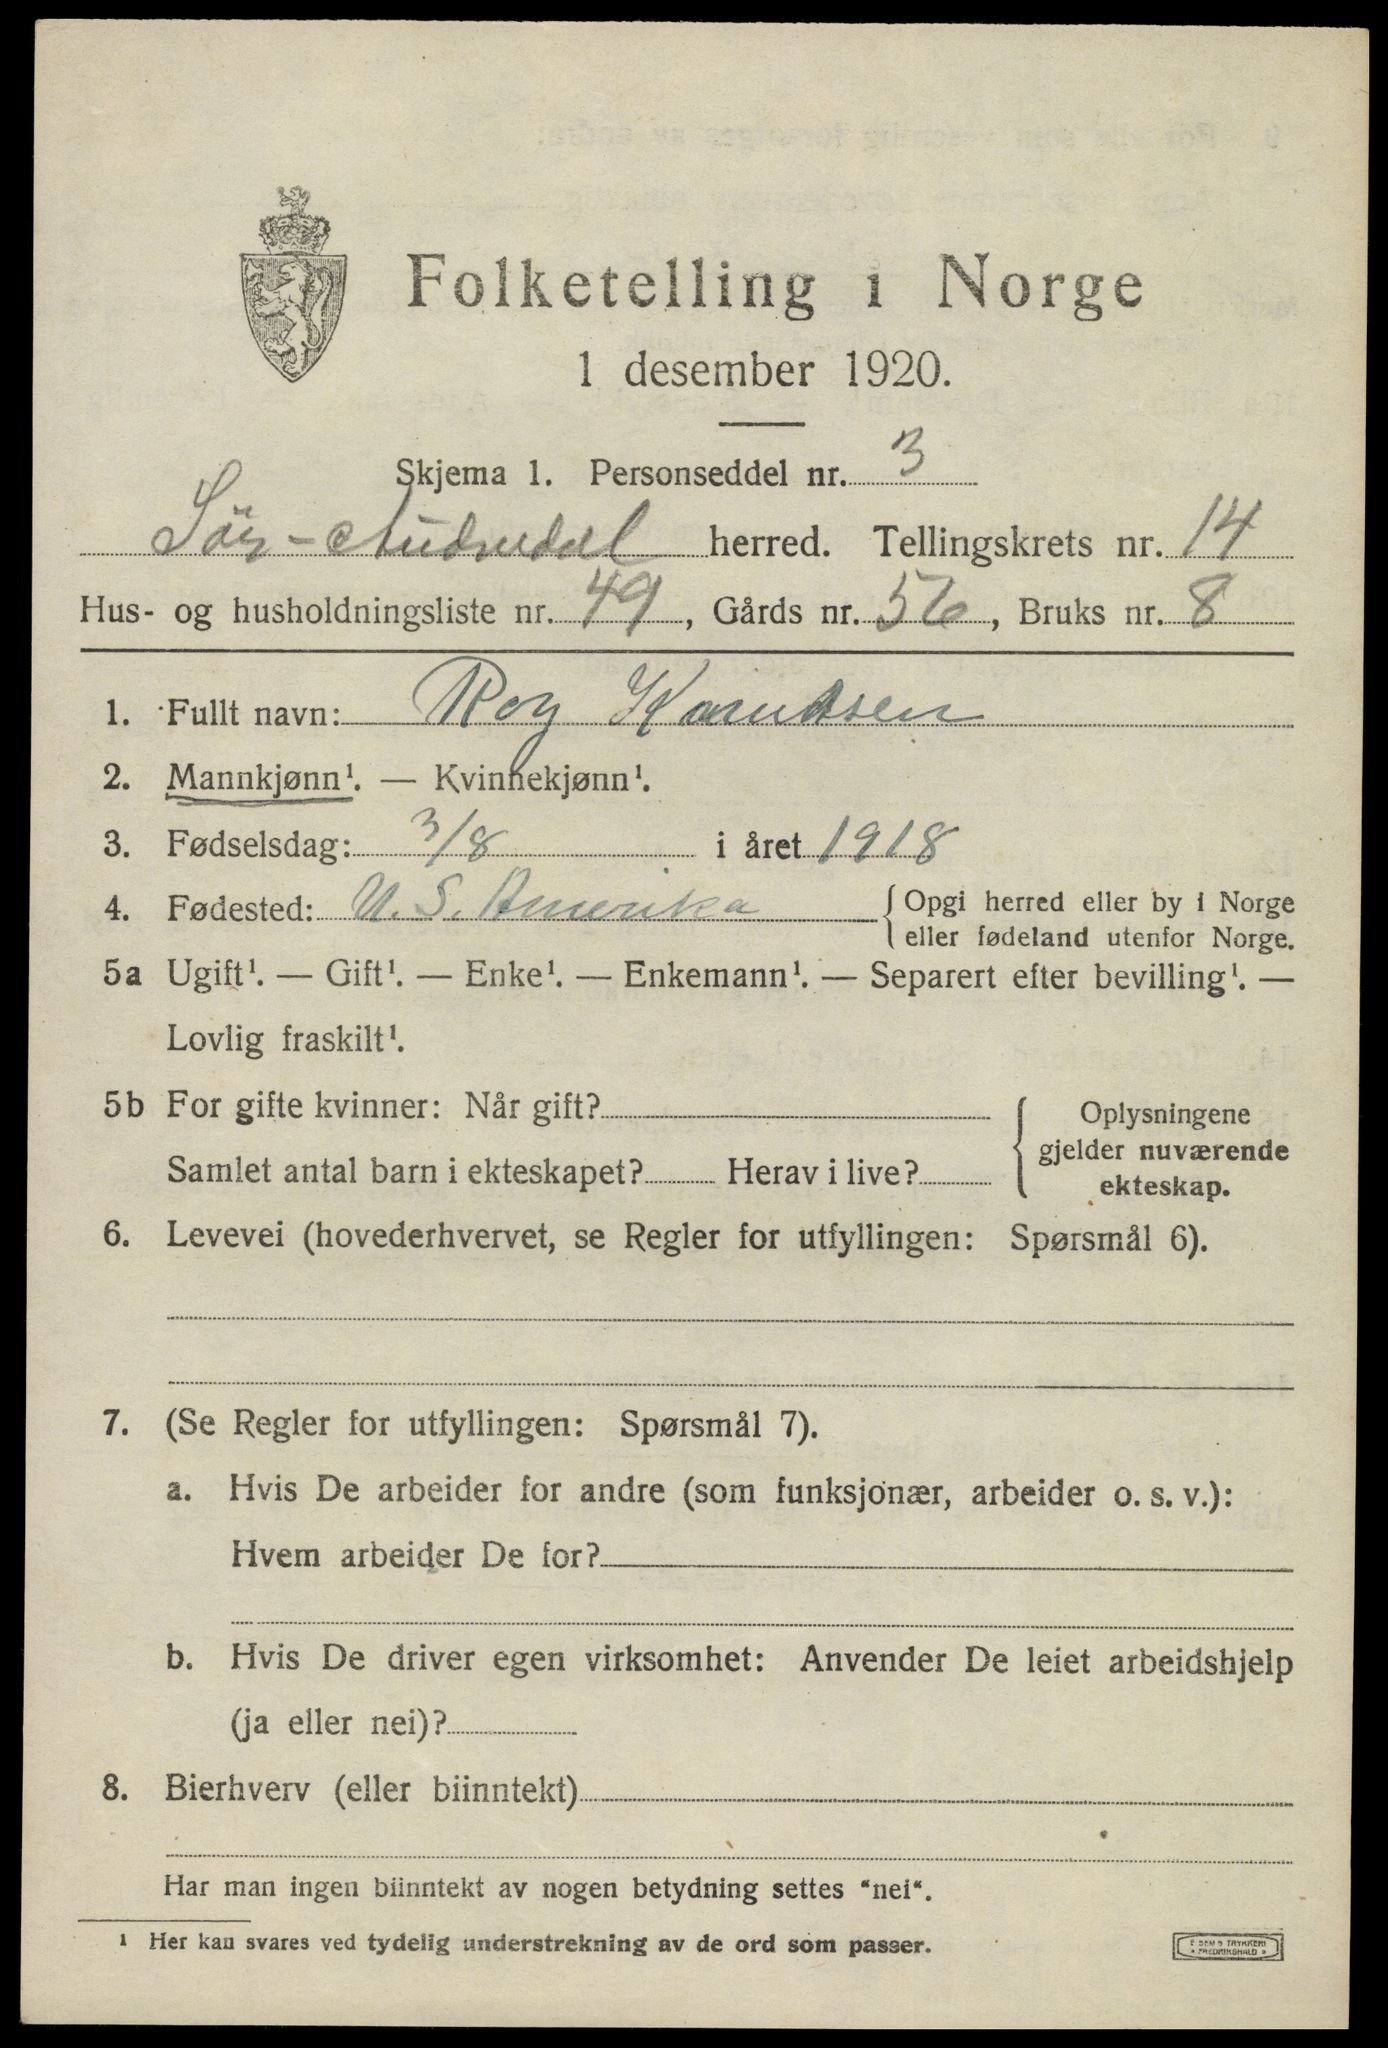 Folketelling i Norge
1 desember 1920.
Skjema 1. Personseddel nr. 3
Sör-Audnedal herred. Tellingskrets nr. 14
Hus- og husholdningsliste nr. 49, Gårds nr. 56, Bruks nr. 8
1. Fullt navn: Roy Knudsen
2. Mannkjønn¹. — Kvinnekjønn¹.
3. Fødselsdag: 3/8 i året 1918
4. Fødested: U. S. Amerika { Opgi herred eller by i Norge
eller fødeland utenfor Norge.
5a Ugift¹. — Gift¹. — Enke¹. — Enkemann¹. — Separert efter bevilling¹. —
Lovlig fraskilt¹.
5b For gifte kvinner: Når gift? { Oplysningene
gjelder nuværende
Samlet antal barn i ekteskapet? Herav i live?
ekteskap.
6. Levevei (hovederhvervet, se Regler for utfyllingen: Spørsmål 6).
7. (Se Regler for utfyllingen: Spørsmål 7).
a. Hvis De arbeider for andre (som funksjonær, arbeider o. s. v.):
Hvem arbeider De for?
b. Hvis De driver egen virksomhet: Anvender De leiet arbeidshjelp
(ja eller nei)?
8. Bierhverv (eller biinntekt)
Har man ingen biinntekt av nogen betydning settes “nei“.
¹ Her kan svares ved tydelig understrekning av de ord som passer.
TRYKKERI
FREDRIKSHALD